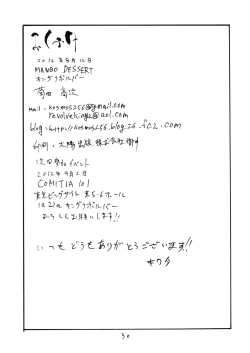 おくづけ
2012年5月12日
MANGO DESSERT
キングリボルバー
菊田 高次
mail: kosmos256@gmail.com
revolvekingz@aol.com
blog: http://kosmos256.blog26.fc2.com
印刷: 大陽出版株式会社御中
次回参加イベント
2012年9月2日
COMITIA 101
東京ビッグサイト 東5・6ホール
キングリボルバー
よろしくお願いします!!
いつもどうもありがとうございます!!
キクタ
30